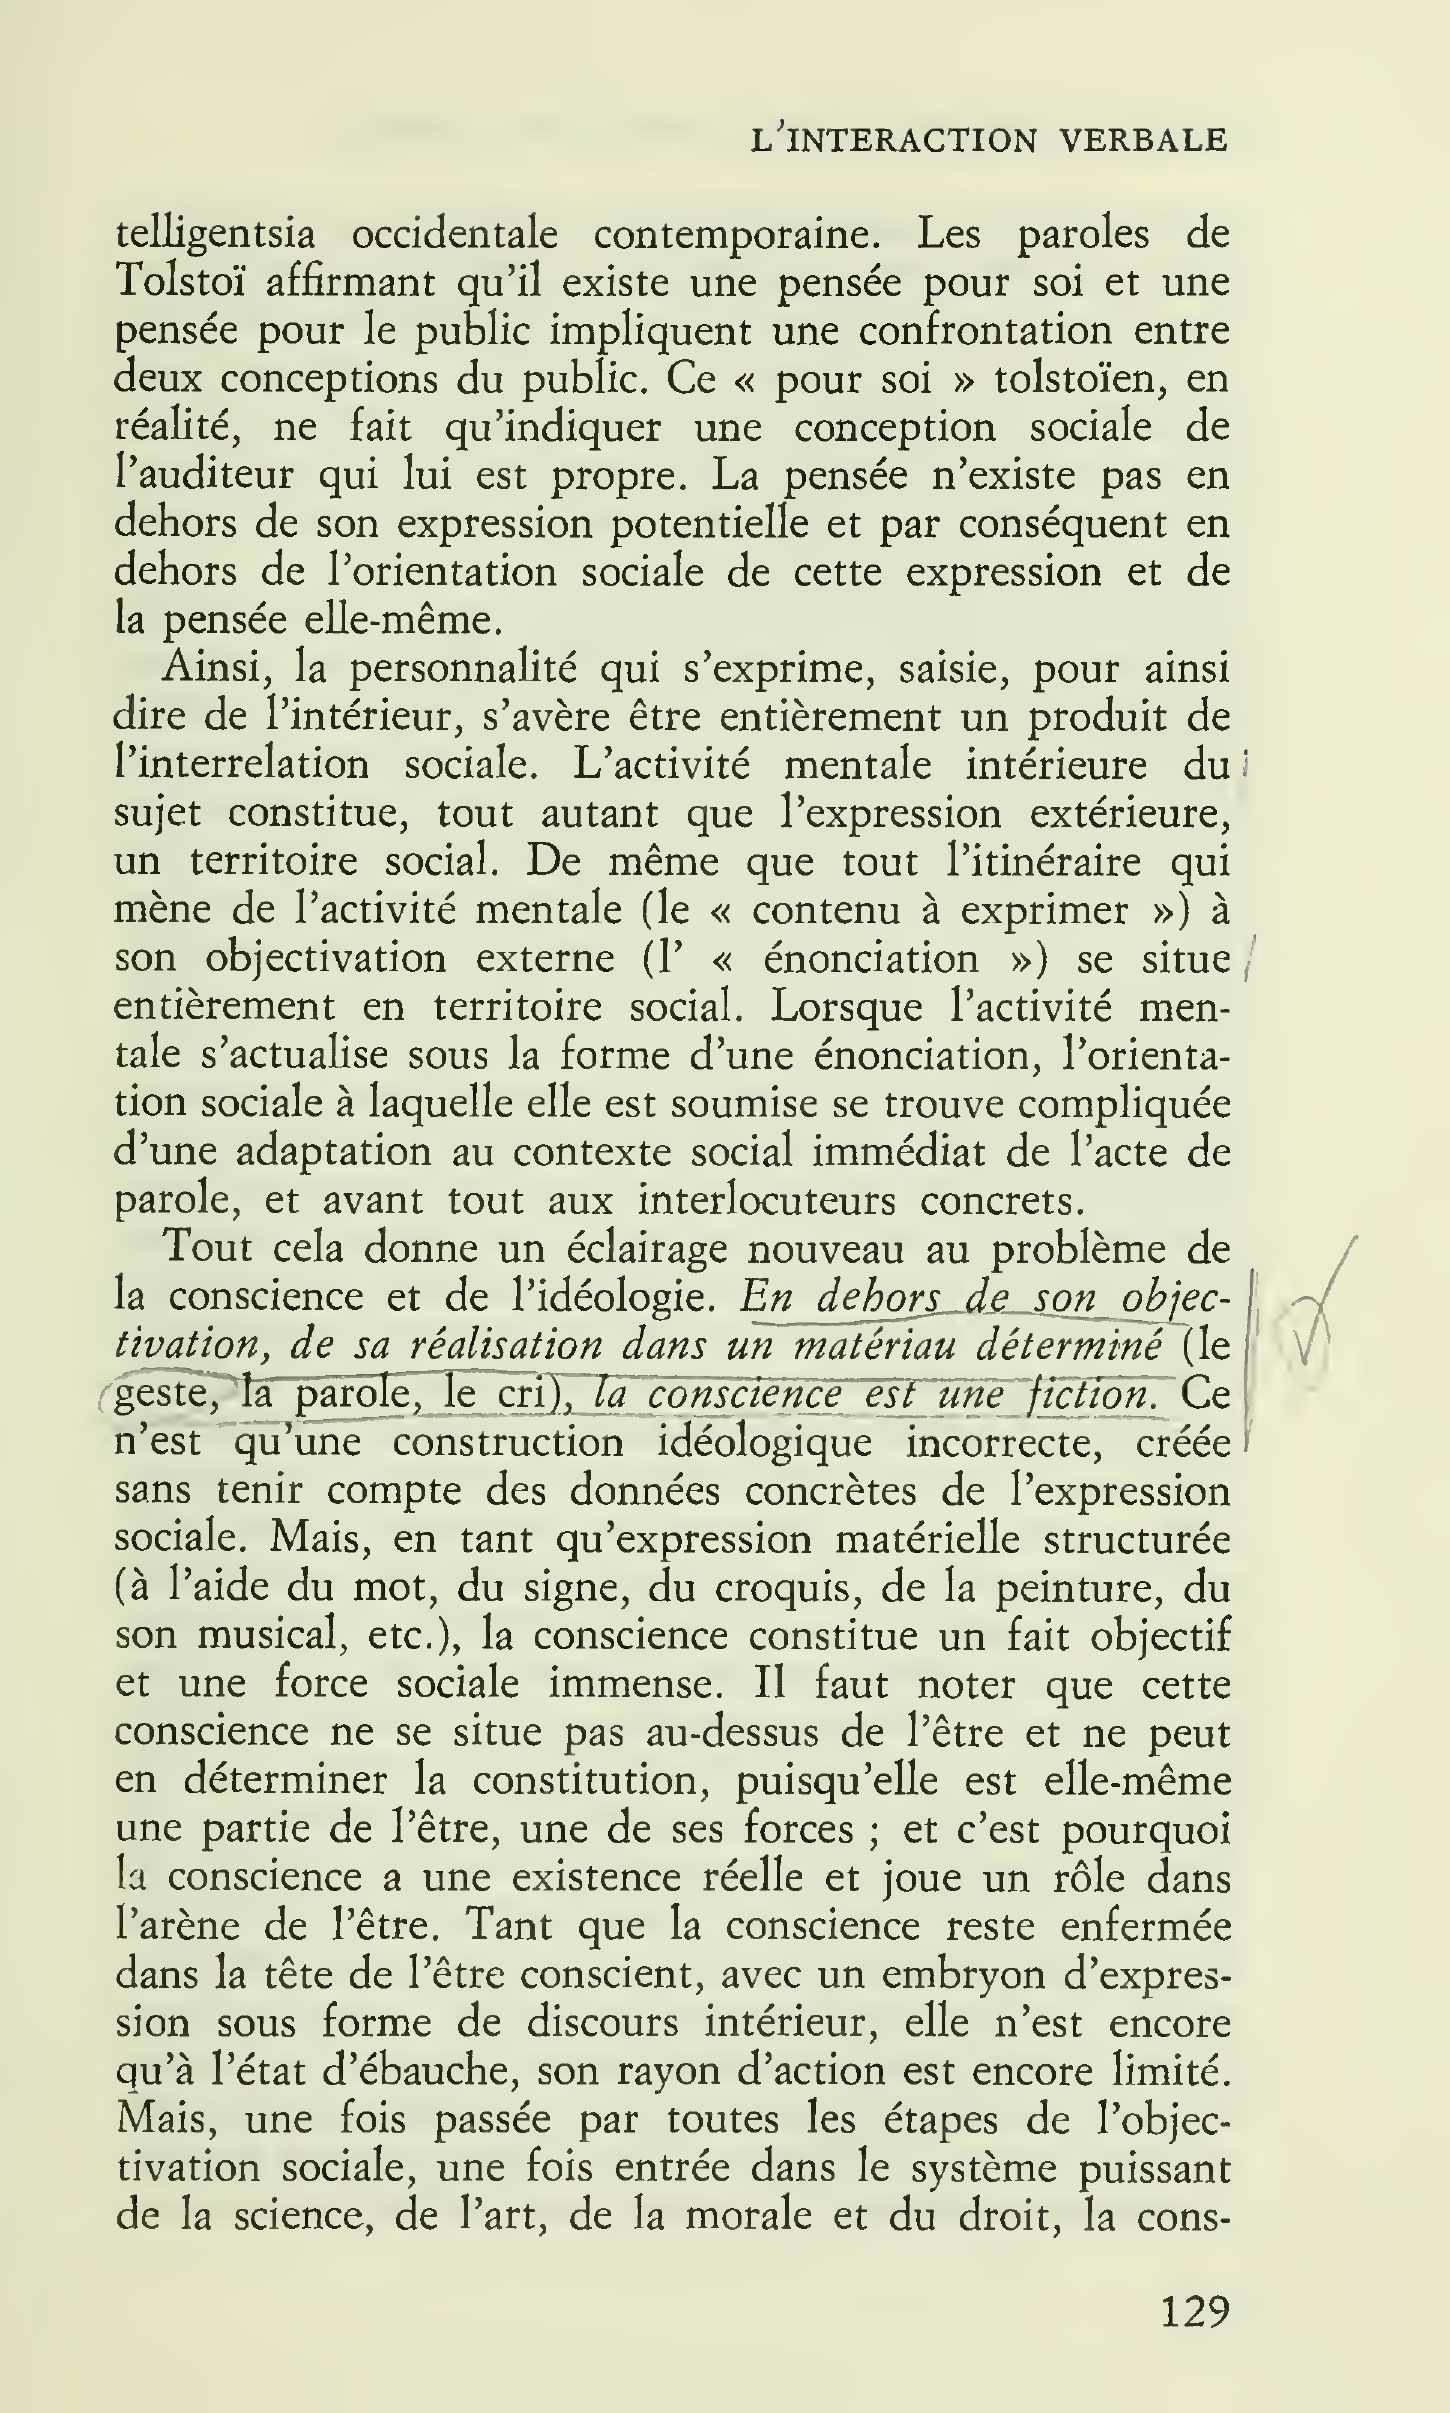 L'INTERACTION VERBALE
telligentsia occidentale contemporaine. Les paroles de
Tolstoï affirmant qu'il existe une pensée pour soi et une
pensée pour le public impliquent une confrontation entre
deux conceptions du public. Ce « pour soi » tolstoïen, en
réalité, ne fait qu'indiquer une conception sociale de
l'auditeur qui lui est propre. La pensée n'existe pas en
dehors de son expression potentielle et par conséquent en
dehors de l'orientation sociale de cette expression et de
la pensée elle-même.
Ainsi, la personnalité qui s'exprime, saisie, pour ainsi
dire de l'intérieur, s'avère être entièrement un produit de
l'interrelation sociale. L'activité mentale intérieure du
sujet constitue, tout autant que l'expression extérieure,
un territoire social. De même que tout l'itinéraire qui
mène de l'activité mentale (le « contenu à exprimer ») à
son objectivation externe (l' « énonciation ») se situe
entièrement en territoire social. Lorsque l'activité men-
tale s'actualise sous la forme d'une énonciation, l'orienta-
tion sociale à laquelle elle est soumise se trouve compliquée
d'une adaptation au contexte social immédiat de l'acte de
parole, et avant tout aux interlocuteurs concrets.
Tout cela donne un éclairage nouveau au problème de
la conscience et de l'idéologie. En dehors de son objec-
tivation, de sa réalisation dans un matériau déterminé (le
geste, la parole, le cri), la conscience est une fiction. Ce
n'est qu'une construction idéologique incorrecte, créée
sans tenir compte des données concrètes de l'expression
sociale. Mais, en tant qu'expression matérielle structurée
(à l'aide du mot, du signe, du croquis, de la peinture, du
son musical, etc.), la conscience constitue un fait objectif
et une force sociale immense. Il faut noter que cette
conscience ne se situe pas au-dessus de l'être et ne peut
en déterminer la constitution, puisqu'elle est elle-même
une partie de l'être, une de ses forces ; et c'est pourquoi
la conscience a une existence réelle et joue un rôle dans
l'arène de l'être. Tant que la conscience reste enfermée
dans la tête de l'être conscient, avec un embryon d'expres-
sion sous forme de discours intérieur, elle n'est encore
qu'à l'état d'ébauche, son rayon d'action est encore limité.
Mais, une fois passée par toutes les étapes de l'objec-
tivation sociale, une fois entrée dans le système puissant
de la science, de l'art, de la morale et du droit, la cons-
129